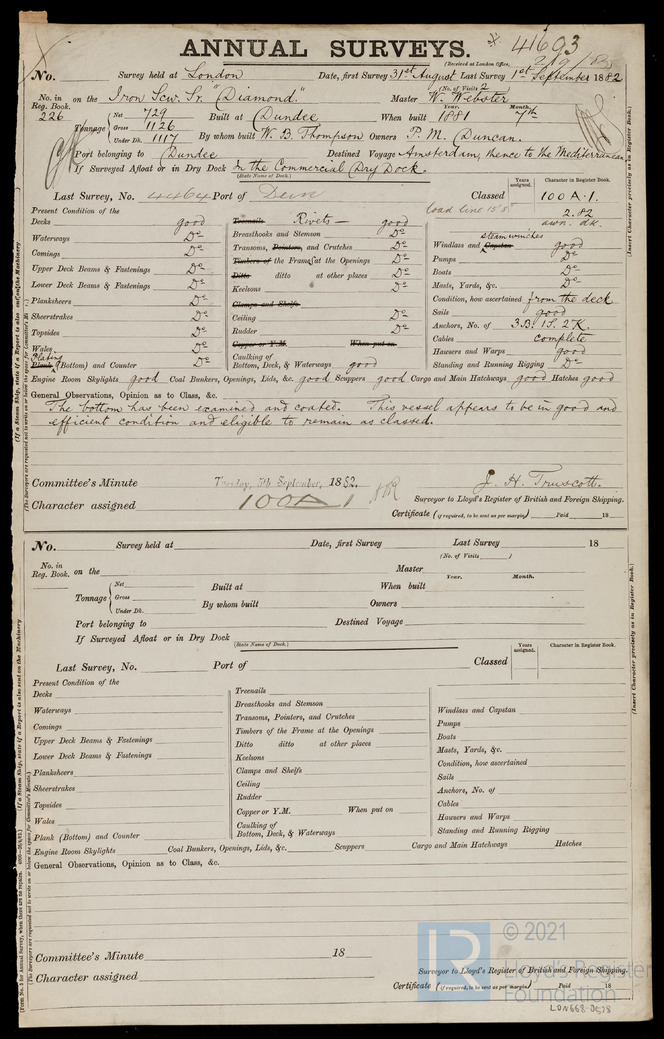 ANNUAL SURVEYS. 41693
(Received at London Office, 2/9/82
No. Survey held at London Date, first Survey 31st August Last Survey 1st September 1882
(No. of Visits 2
No. in Reg. Book. 226 on the Iron Scw. Sr. "Diamond." Master W. Webster
Tonnage Net 729 Built at Dundee When built Year. 1881 Month. 7th
Gross 1126
Under Dk. 1117 By whom built W. B. Thompson Owners P. M. Duncan.
Port belonging to Dundee Destined Voyage Amsterdam, thence to the Mediterranean
If Surveyed Afloat or in Dry Dock In the Commercial Dry Dock.
(State Name of Dock.)
Years assigned. Character in Register Book.
Last Survey, No. 4464 Port of Classed 100 A.1.
load line 15'8" 2.82
awn. dk.
Present Condition of the
Decks good
Waterways Do
Comings Do
Upper Deck Beams & Fastenings Do
Lower Deck Beams & Fastenings Do
Planksheers Do
Sheerstrakes Do
Topsides Do
Wales Do
Plating
Plank (Bottom) and Counter Do
Treenails Rivets good
Breasthooks and Stemson Do
Transoms, Pointers, and Crutches Do
Timbers of the Frames at the Openings Do
Ditto ditto at other places Do
Keelsons Do
Clamps and Shelfs
Ceiling Do
Rudder Do
Copper or Y.M. When put on
Caulking of
Bottom, Deck, & Waterways good
steam winches
Windlass and Capstan good
Pumps Do
Boats Do
Masts, Yards, &c. Do
Condition, how ascertained from the deck
Sails good
Anchors, No. of 3B. 1S. 2K.
Cables complete
Hawsers and Warps good
Standing and Running Rigging Do
Engine Room Skylights good Coal Bunkers, Openings, Lids, &c. good Scuppers good Cargo and Main Hatchways good Hatches good
General Observations, Opinion as to Class, &c.
The bottom has been examined and coated. This vessel appears to be in good and
efficient condition and eligible to remain as classed.
Committee's Minute Tuesday, 5th September, 1882.
J. H. Truscott.
Character assigned 100A1
Surveyor to Lloyd's Register of British and Foreign Shipping.
Certificate (if required, to be sent as per margin) Paid 18
No. Survey held at Date, first Survey Last Survey 18
(No. of Visits )
No. in Reg. Book. on the Master
Tonnage Net Built at When built Year. Month.
Gross
Under Dk. By whom built Owners
Port belonging to Destined Voyage
If Surveyed Afloat or in Dry Dock
(State Name of Dock.)
Years assigned. Character in Register Book.
Last Survey, No. Port of Classed
Present Condition of the
Decks
Waterways
Comings
Upper Deck Beams & Fastenings
Lower Deck Beams & Fastenings
Planksheers
Sheerstrakes
Topsides
Wales
Plank (Bottom) and Counter
Treenails
Breasthooks and Stemson
Transoms, Pointers, and Crutches
Timbers of the Frame at the Openings
Ditto ditto at other places
Keelsons
Clamps and Shelfs
Ceiling
Rudder
Copper or Y.M. When put on
Caulking of
Bottom, Deck, & Waterways
Windlass and Capstan
Pumps
Boats
Masts, Yards, &c.
Condition, how ascertained
Sails
Anchors, No. of
Cables
Hawsers and Warps
Standing and Running Rigging
Engine Room Skylights Coal Bunkers, Openings, Lids, &c. Scuppers Cargo and Main Hatchways Hatches
General Observations, Opinion as to Class, &c.
Committee's Minute 18
Character assigned
Surveyor to Lloyd's Register of British and Foreign Shipping.
Certificate (if required, to be sent as per margin) Paid 18
(Insert Character precisely as in Register Book.)
(Insert Character precisely as in Register Book.)
LR
© 2021
Lloyd's Register
Foundation
LON668-0578